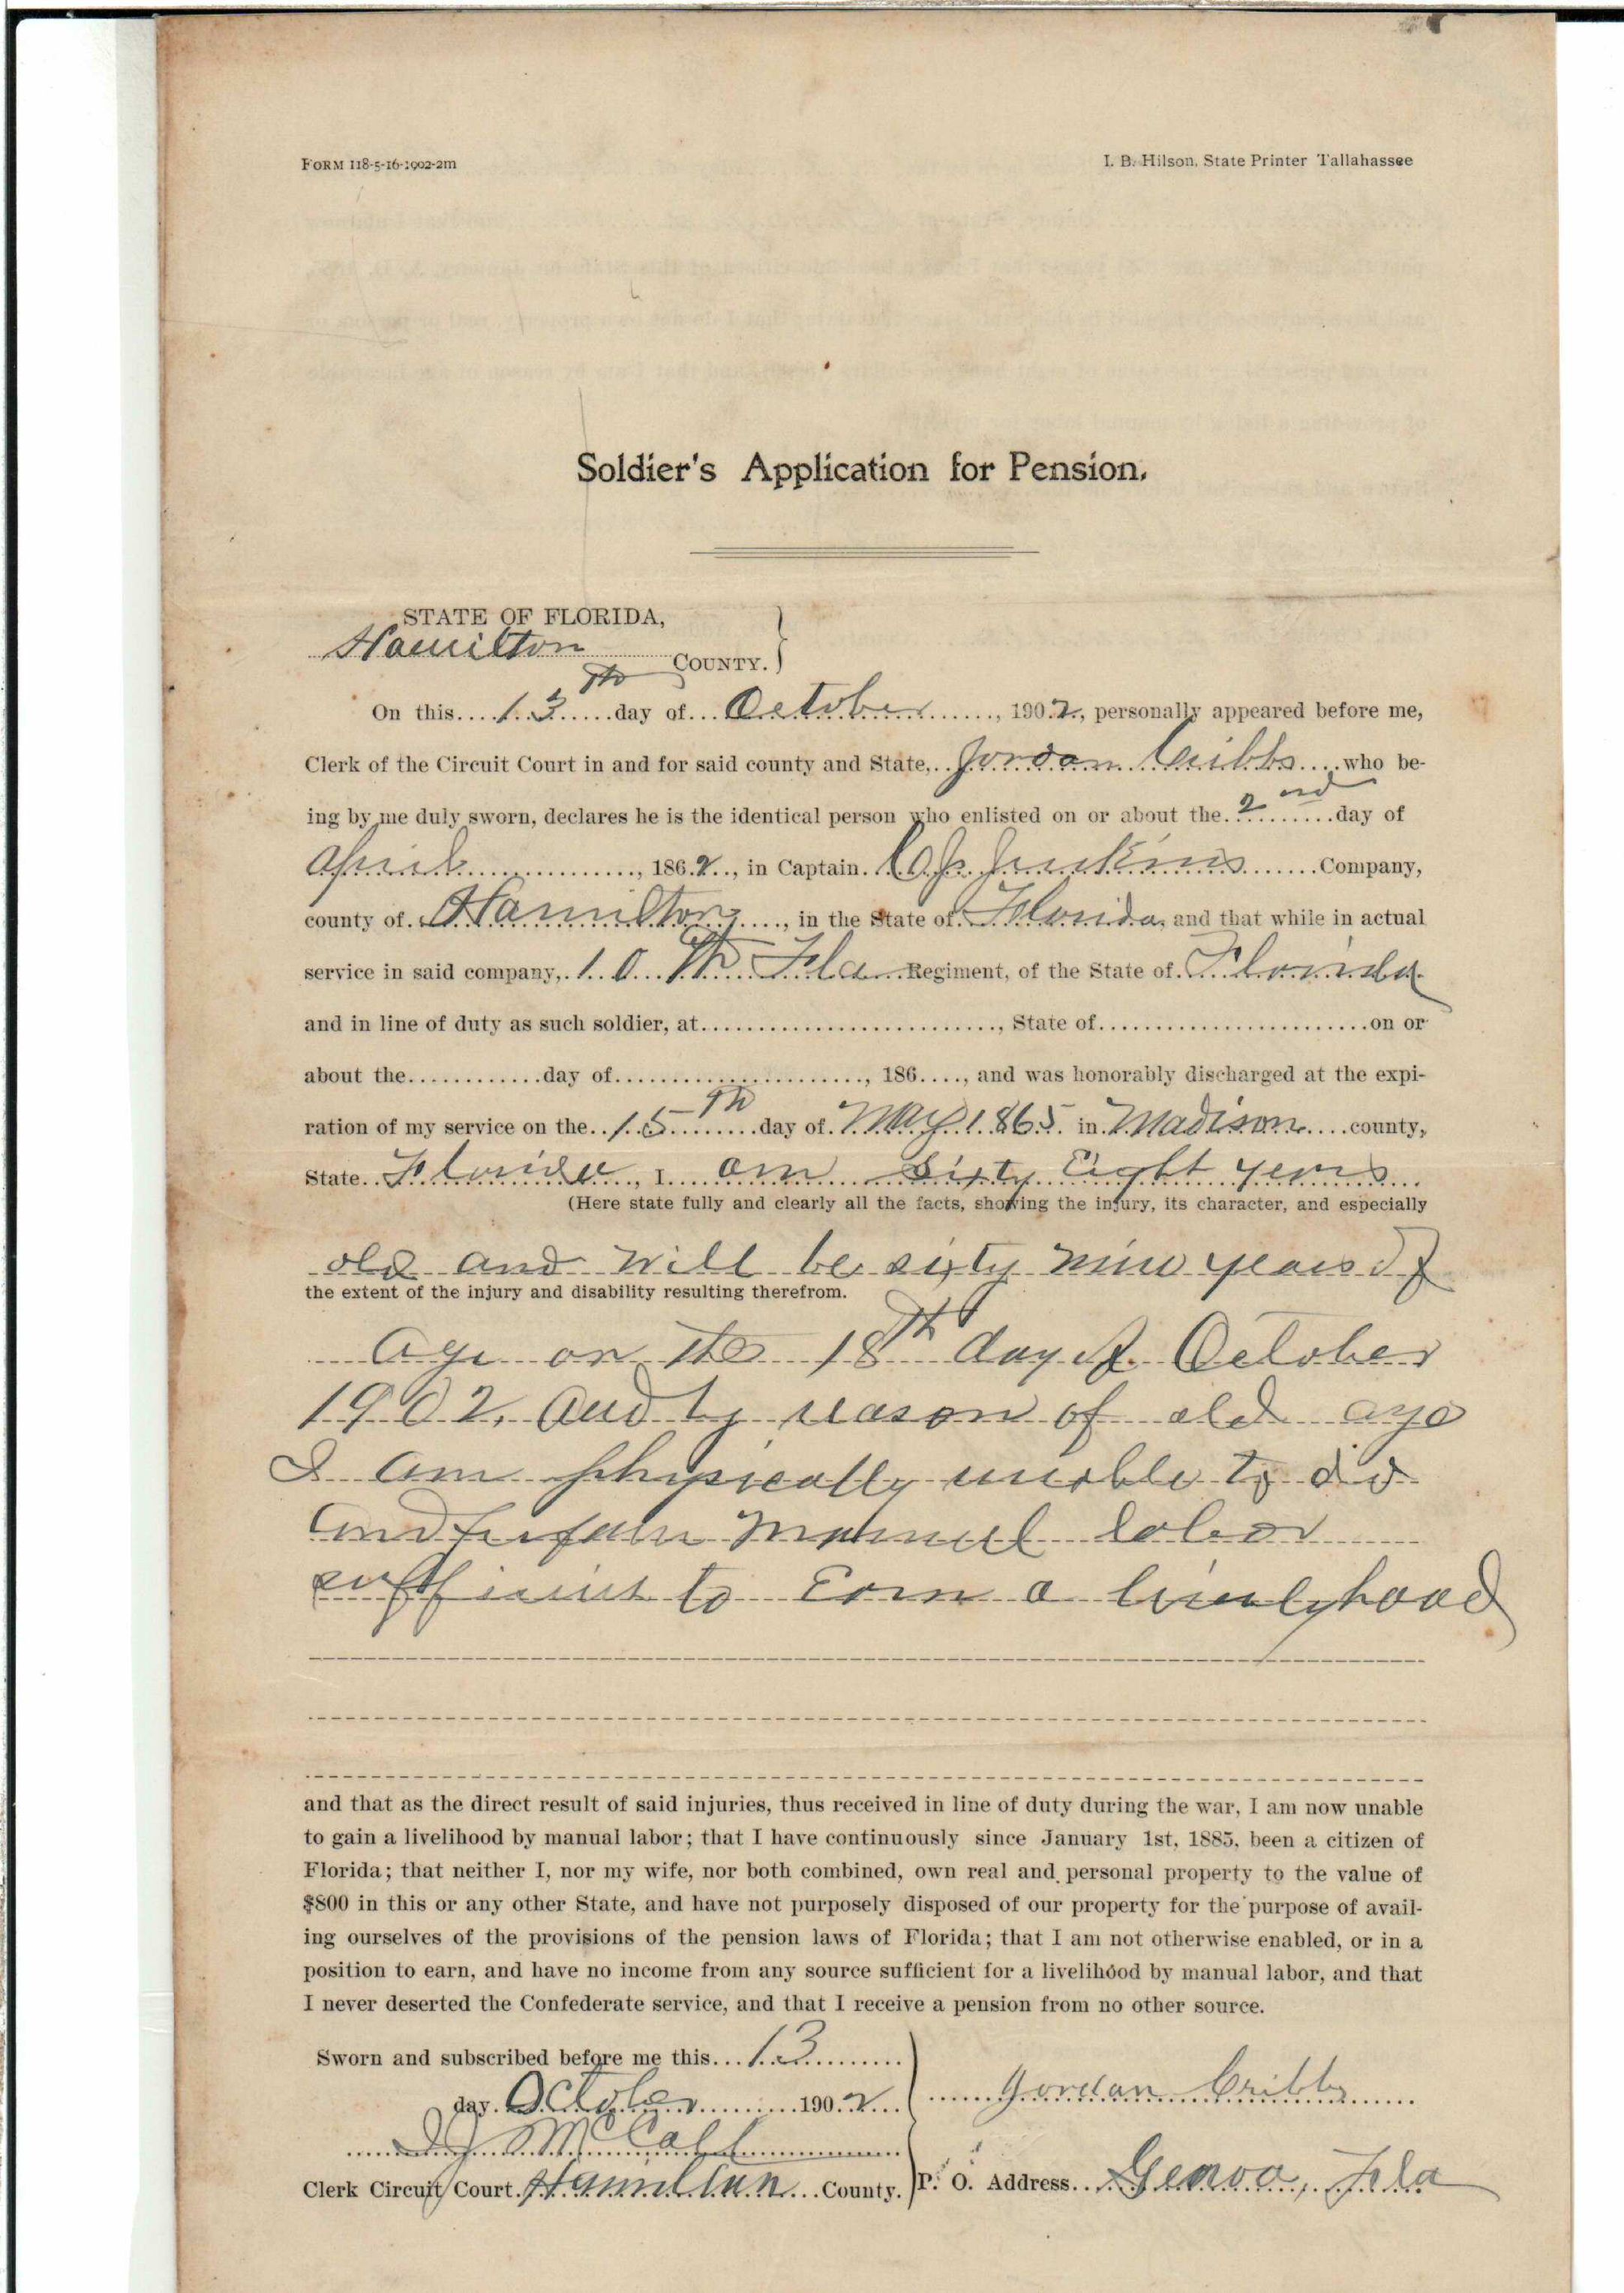 FORM 118-5-16-1902-2m
I. B. Hilson, State Printer Tallahassee
Soldier's Application for Pension.
STATE OF FLORIDA,
Hamilton COUNTY.
On this 13th day of October, 1902, personally appeared before me,
Clerk of the Circuit Court in and for said county and State, Jordan Cribbs who be-
ing by me duly sworn, declares he is the identical person who enlisted on or about the 2nd day of
April, 1862, in Captain Jenkins Company,
county of Hamilton, in the State of Florida, and that while in actual
service in said company, 10th Fla Regiment, of the State of Florida
and in line of duty as such soldier, at, State of on or
about the day of, 186, and was honorably discharged at the expi-
ration of my service on the 15th day of May 1865 in Madison county,
State Florida, I am sixty Eight years
(Here state fully and clearly all the facts, showing the injury, its character, and especially
old and will be sixty nine years of
the extent of the injury and disability resulting therefrom.
age on the 18th day of October
1902, and by reason of old age
I am physically unable to do
and perform manuel labor
sufficient to Earn a livelyhood
and that as the direct result of said injuries, thus received in line of duty during the war, I am now unable
to gain a livelihood by manual labor; that I have continuously since January 1st, 1885, been a citizen of
Florida; that neither I, nor my wife, nor both combined, own real and personal property to the value of
$800 in this or any other State, and have not purposely disposed of our property for the purpose of avail-
ing ourselves of the provisions of the pension laws of Florida; that I am not otherwise enabled, or in a
position to earn, and have no income from any source sufficient for a livelihood by manual labor, and that
I never deserted the Confederate service, and that I receive a pension from no other source.
Sworn and subscribed before me this 13
day October 1902
Jordan Cribbs
McCall
Clerk Circuit Court Hamilton County.
P. O. Address Genoa, Fla